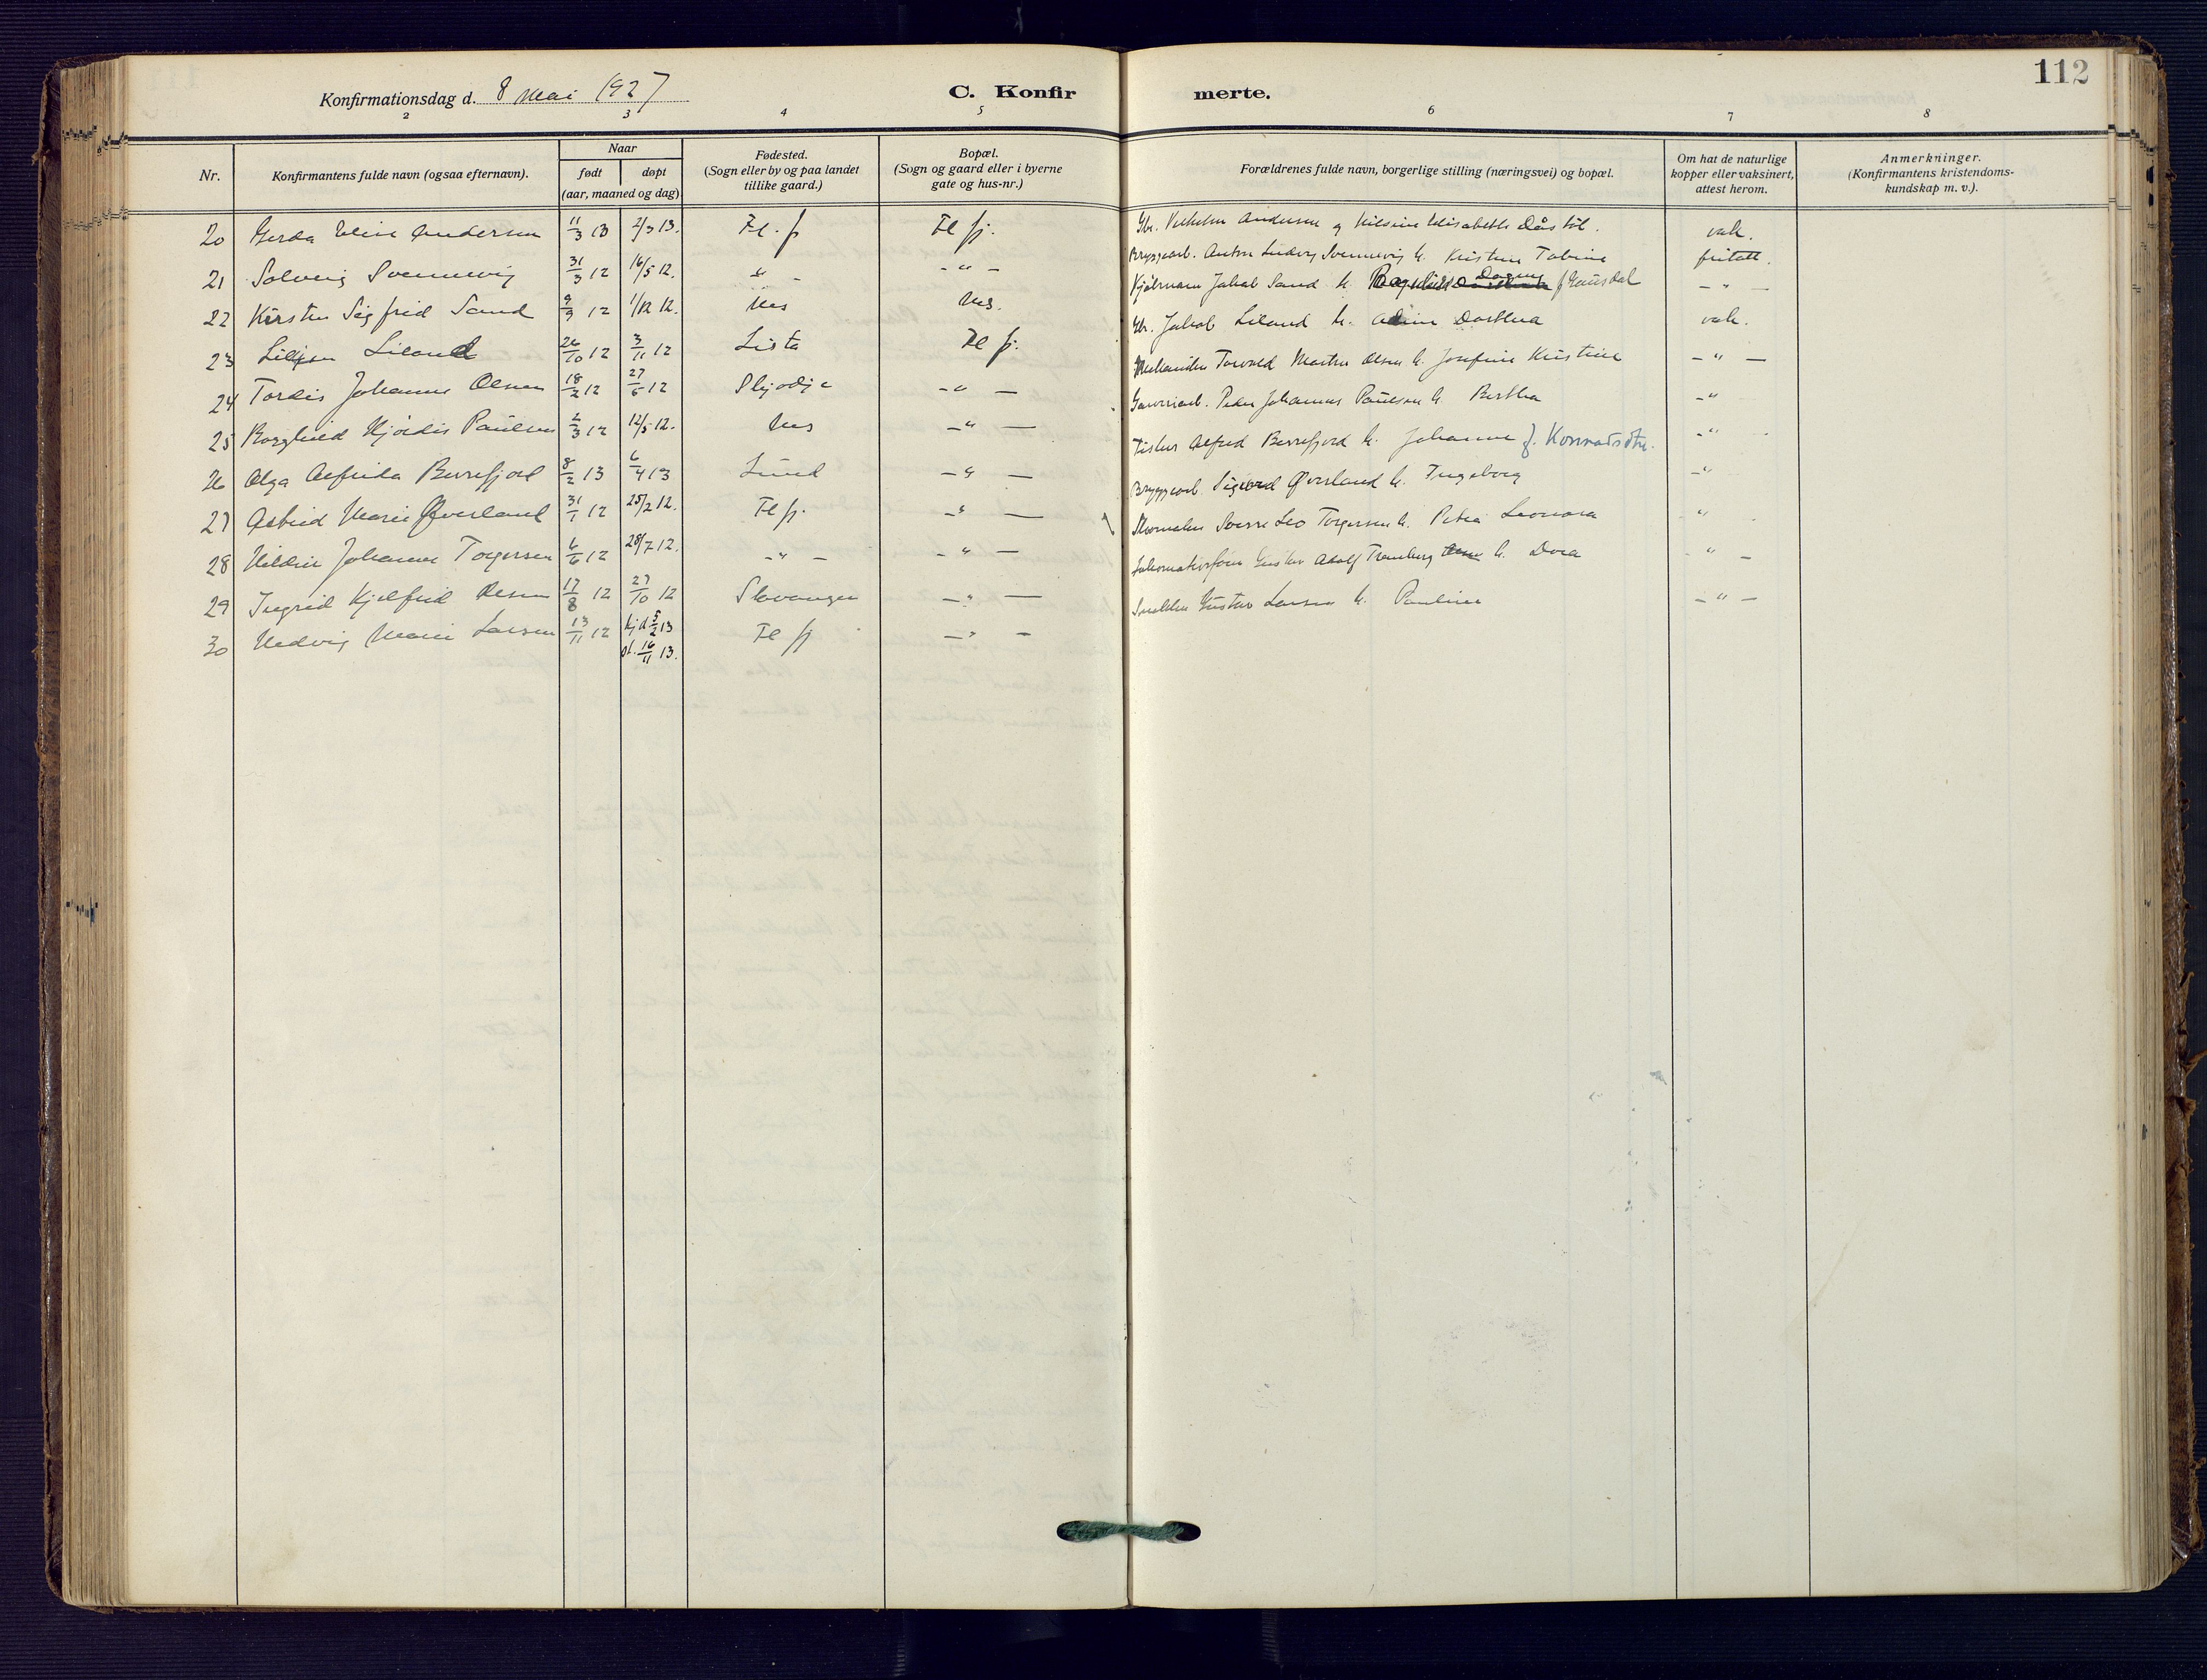 112
Konfirmationsdag d. 8 Mai 1927
C. Konfirmerte.
2 3 4 5 6 7 8
Nr.
Konfirmantens fulde navn (ogsaa efternavn).
Naar
født
døpt
(aar, maaned og dag)
Fødested.
(Sogn eller by og paa landet
tillike gaard.)
Bopæl.
(Sogn og gaard eller i byerne
gate og hus-nr.)
Forældrenes fulde navn, borgerlige stilling (næringsvei) og bopæl.
Om hat de naturlige
kopper eller vaksinert,
attest herom.
Anmerkninger.
(Konfirmantens kristendoms-
kundskap m. v.).
20 Gerda Andersen 11/3 13 Fl. fj Fl fj. Andersen og Elisabeth vak.
21 Solveig Svennevig 31/3 12 16/5 12. - " - - " - Bryggearb. Anton Ludvig Svennevig h. Kristine Tobine fritatt.
22 Kirsten Sigfrid Sand 9/9 12 1/12 12. Nes Nes. Jakob Sand h. Dagny f Gausdal - " -
23 Liland 26/10 12 3/11 12 Lista Fl fj. Jakob Liland h. Dorthea vak.
24 Tordis Johanne Olsen 18/2 12 27/5 12 - " - Torvald Martin Olsen h. Josefine Kristine - " -
25 Borghild Hjørdis Paulsen 2/3 12 12/5 12. Nes - " - Garveriarb. Peder Johannes Paulsen h. Bertha - "
26 Olga Alfrida Berrefjord 8/2 13 6/4 13 Lund - " - Fisker Alfred Berrefjord h. Johanne f. Konradsdtr. - "
27 Astrid Marie Øverland 31/1 12 25/2 12. Fl fj. - " - Bryggearb. Sigurd Øverland h. Ingeborg - "
28 Johanne Torgersen 6/6 12 28/7 12. - " - - " - Skomaker Sverre Leo Torgersen h. Petra Leonora "
29 Ingrid Kjellfrid Olsen 17/8 12 27/10 12 Stavanger - " - Lokomotivfører Gustav Adolf h. Dora " -
30 Hedvig Marie Larsen 13/11 12 hj d 5/2 13 Fl fj - " - Gustav Larsen h. Pauline - " -
st. 16/11 13.